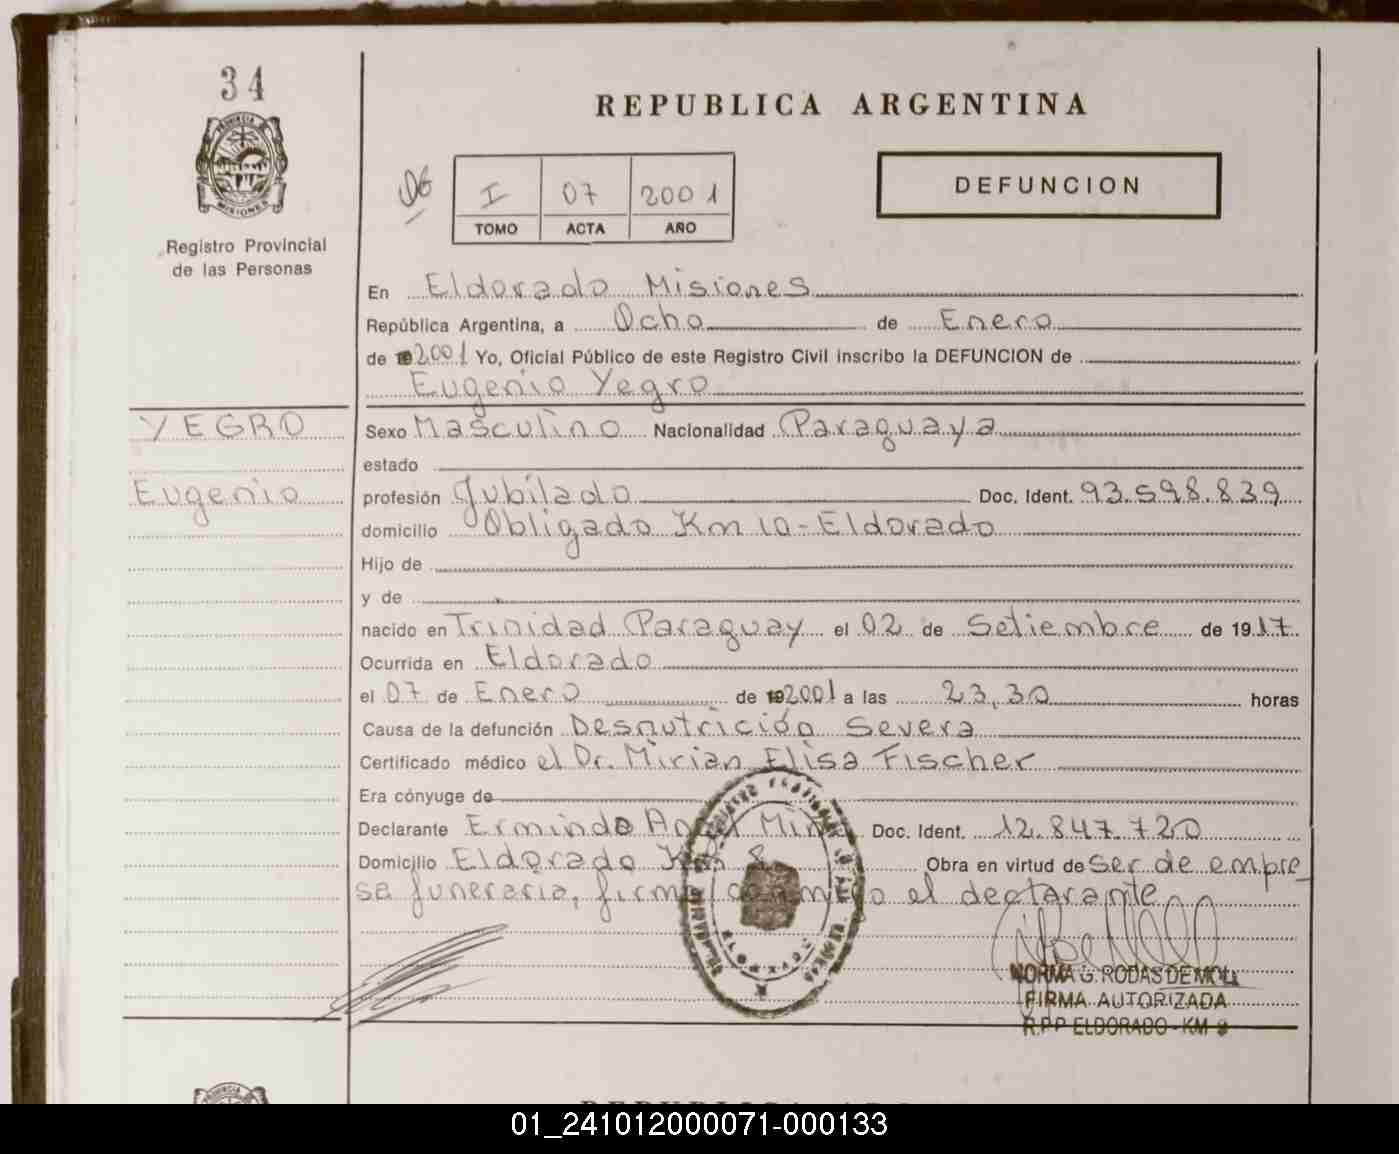 34
PROVINCIA DE
MISIONES
Registro Provincial
de las Personas
REPUBLICA ARGENTINA
I 07 2001
TOMO ACTA AÑO
DEFUNCION
En Eldorado Misiones
República Argentina, a Ocho de Enero
de 2001 Yo, Oficial Público de este Registro Civil inscribo la DEFUNCION de
Eugenio Yegro
YEGRO
Eugenio
Sexo Masculino Nacionalidad Paraguaya
estado
profesión Jubilado Doc. Ident. 93.598.839
domicilio Obligado Km 10-Eldorado
Hijo de
y de
nacido en Trinidad Paraguay el 02 de Setiembre de 1917
Ocurrida en Eldorado
el 07 de Enero de 2001 a las 23,30 horas
Causa de la defunción Desnutrición Severa
Certificado médico el Dr. Mirian Elisa Fischer
Era cónyuge de
Declarante Ermindo Doc. Ident. 12.847.720
Domicilio Eldorado Km 8 Obra en virtud de ser de empre_
sa funeraria, firma conmigo el declarante
NORMA G. RODAS DE MOLL
FIRMA AUTORIZADA
R.P.P ELDORADO - KM 9
01_241012000071-000133